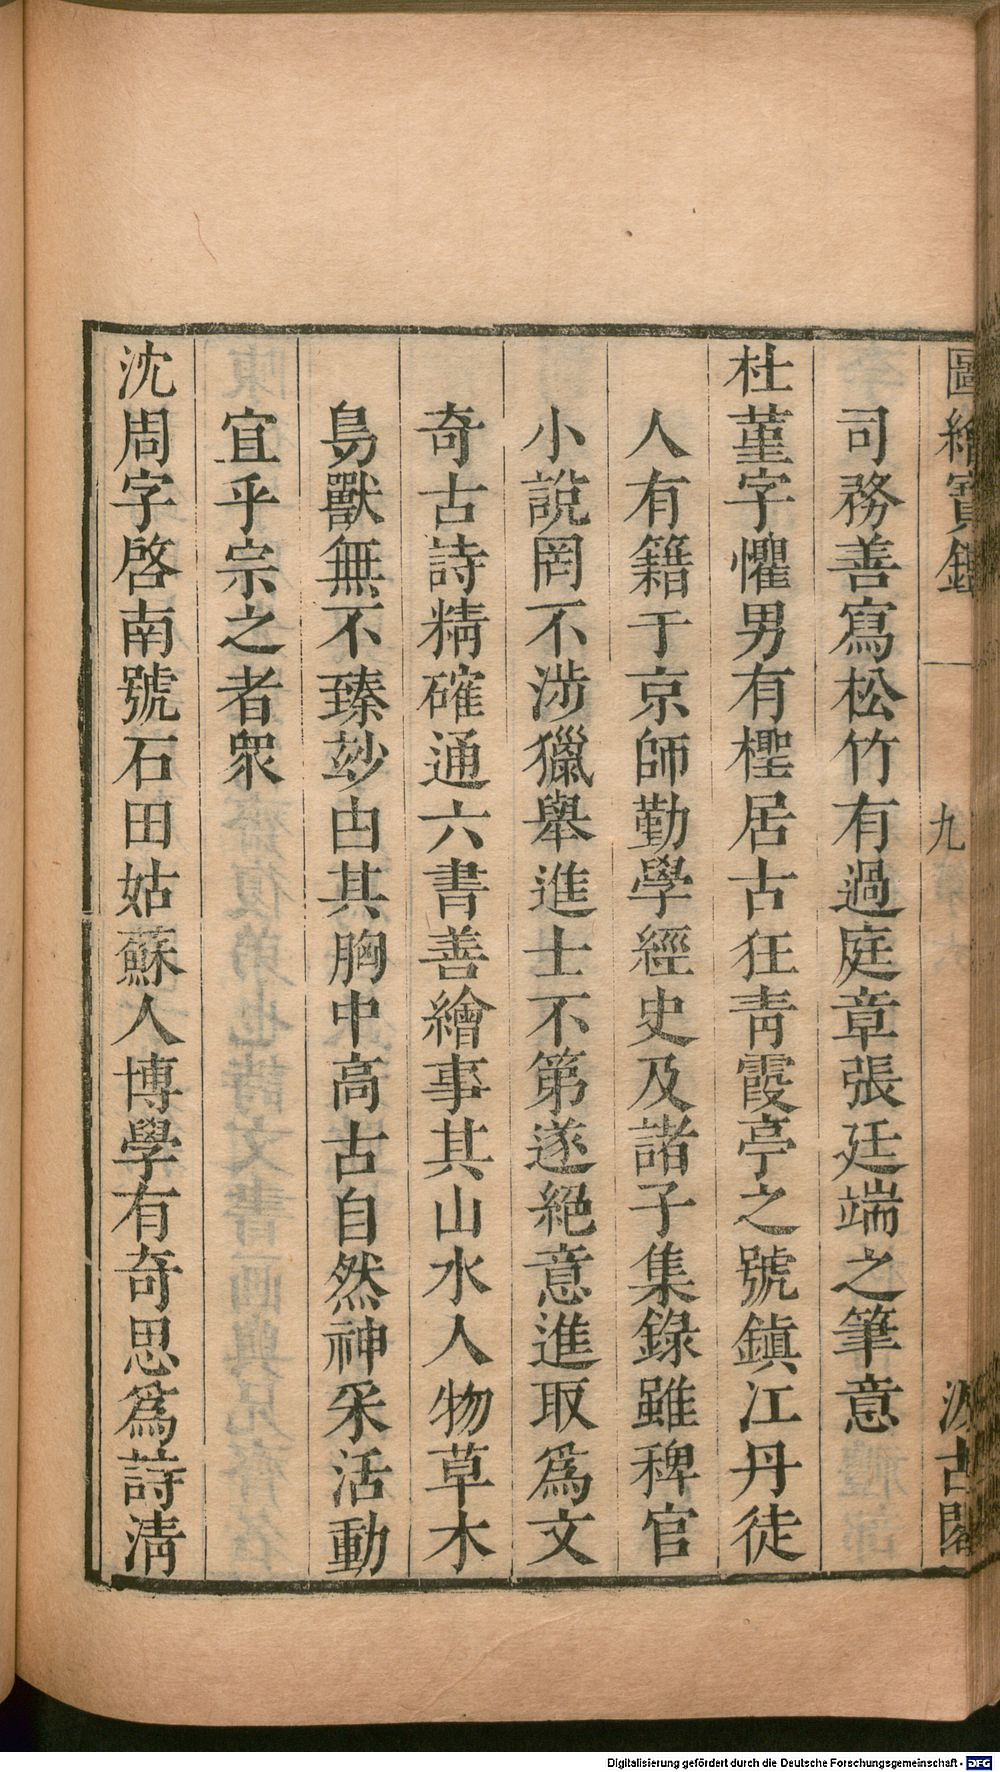 圖繪寶鑑 九 汲古閣
司務善寫松竹有過庭章張廷端之筆意
杜菫字懼男有檉居古狂靑霞亭之號鎭江丹徒
人有籍于京師勤學經史及諸子集錄雖稗官
小說罔不涉獵舉進士不第遂絕意進取爲文
奇古詩精確通六書善繪事其山水人物草木
鳥獸無不臻玅由其胸中高古自然神采活動
宜乎宗之者衆
沈周字啓南號石田姑蘇人博學有奇思爲詩淸
Digitalisierung gefördert durch die Deutsche Forschungsgemeinschaft - DFG